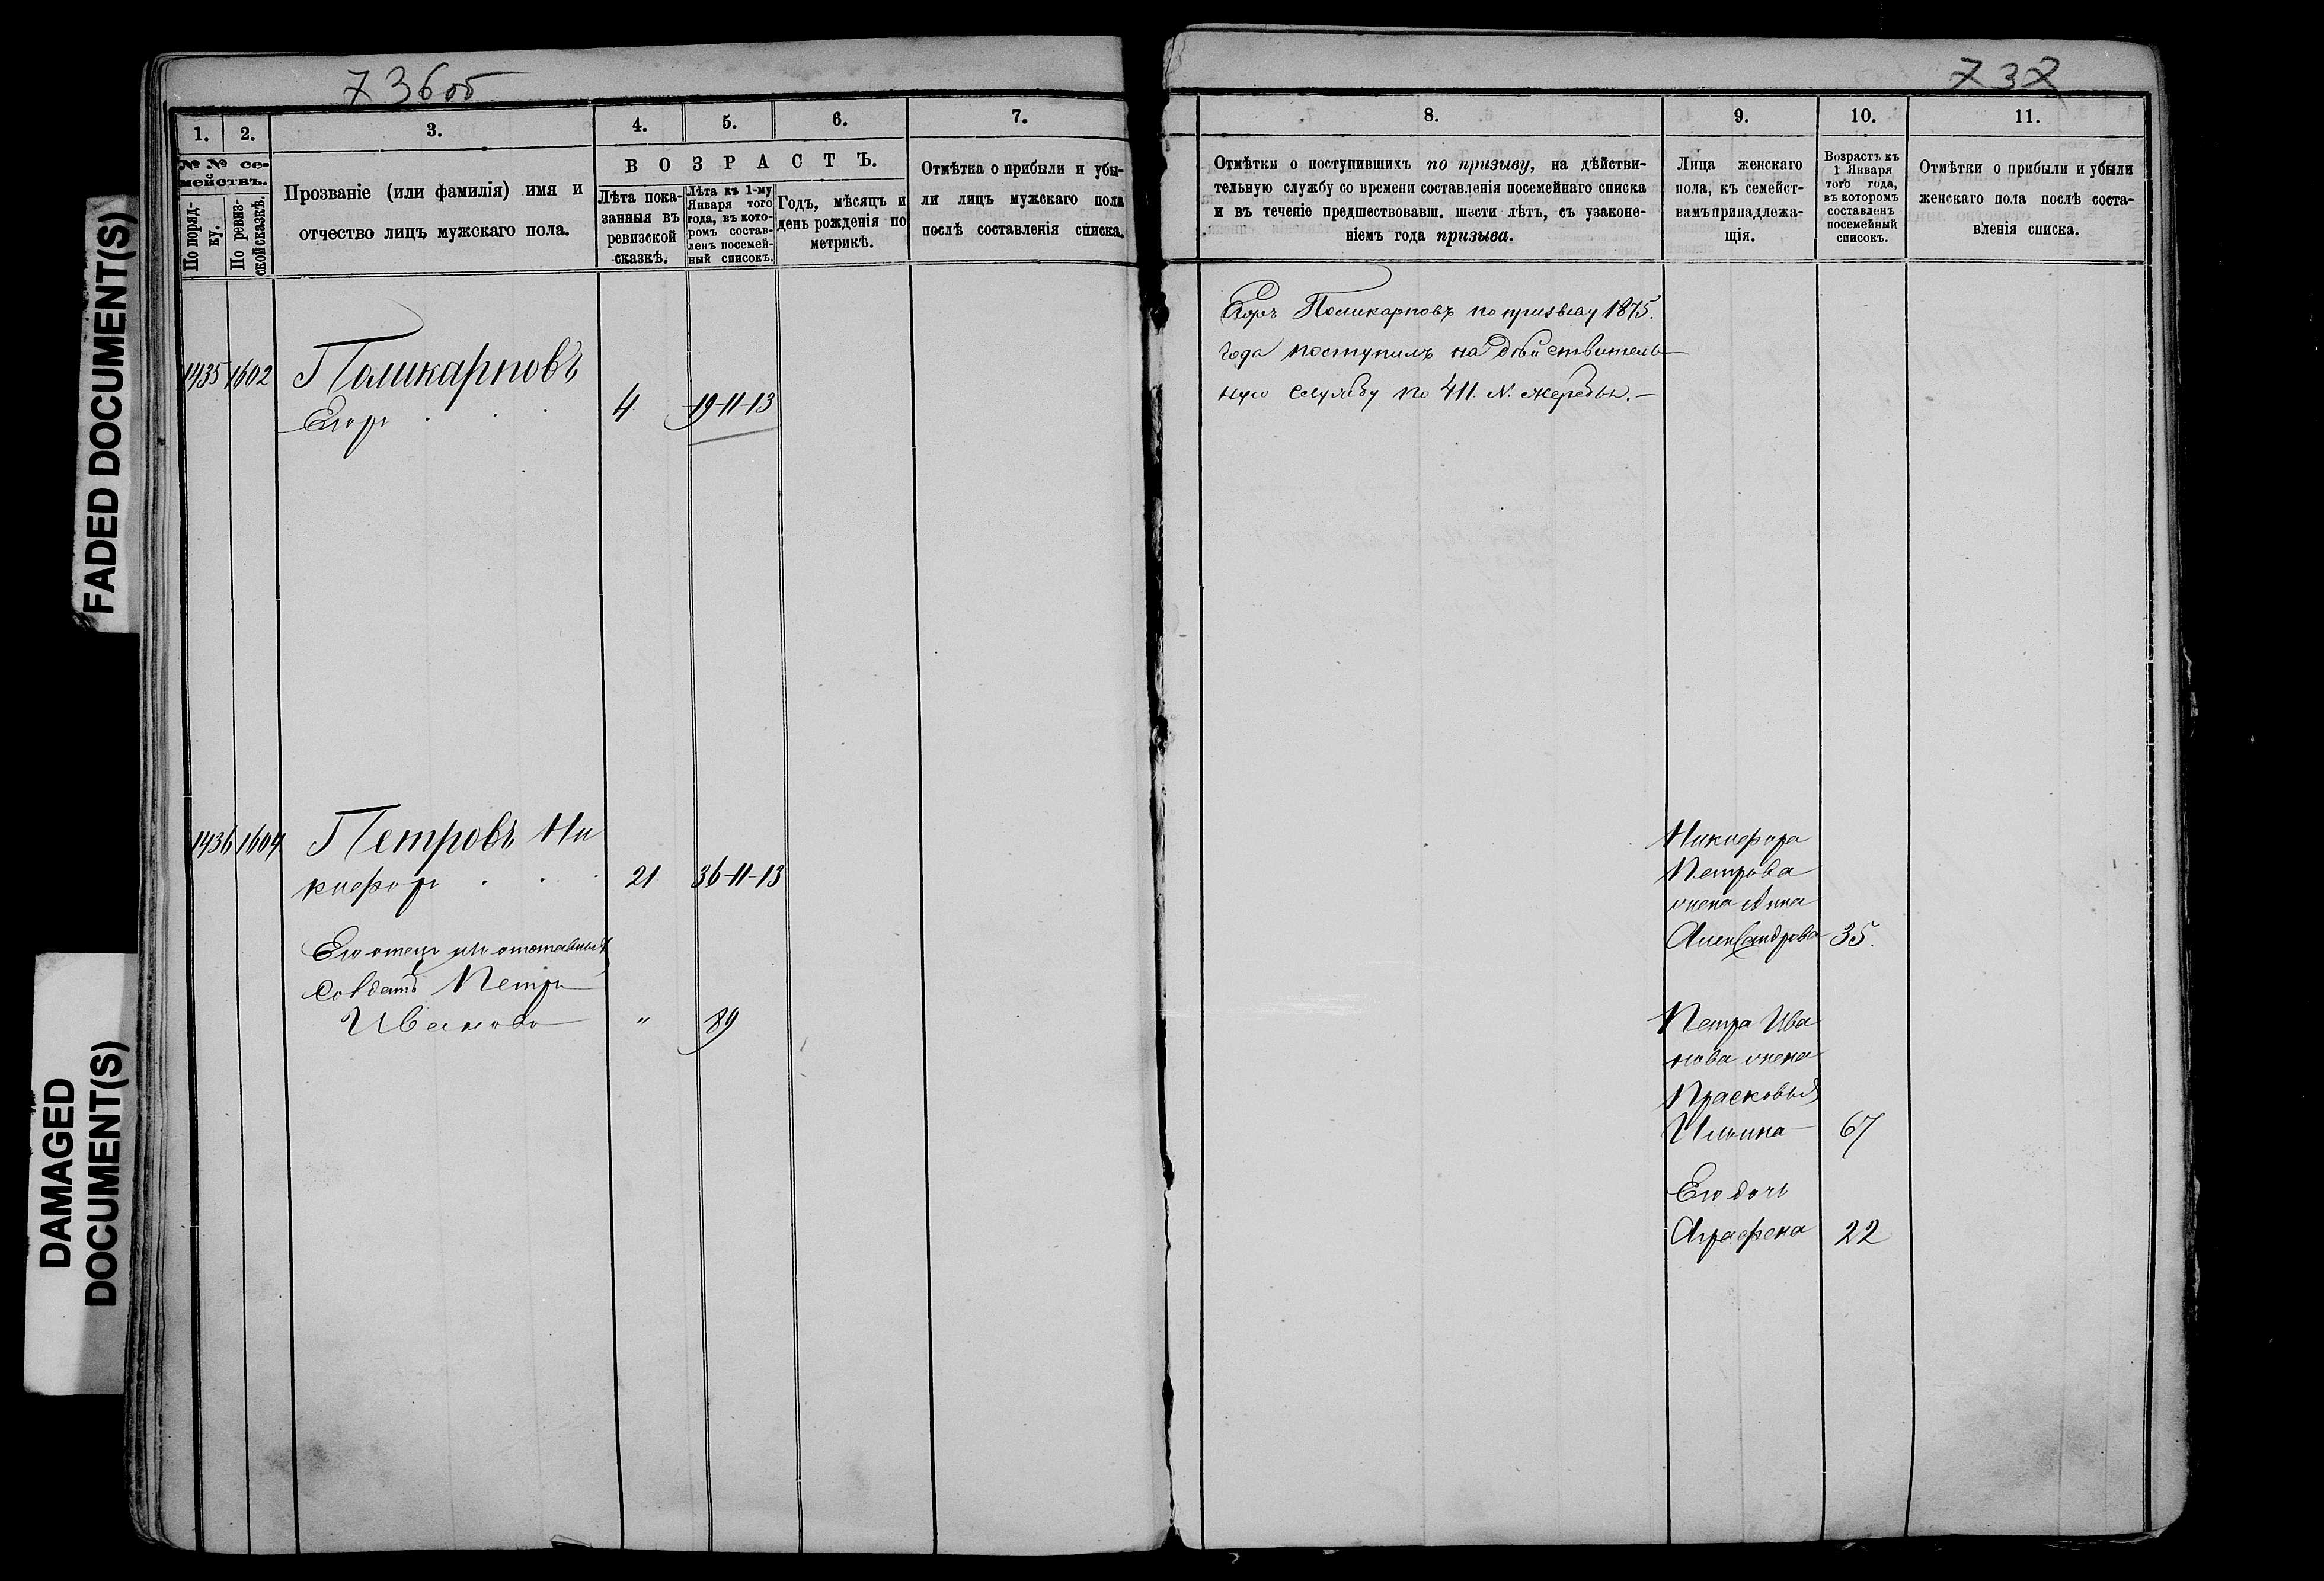 736об
737
FADED DOCUMENT(S)
DAMAGED
DOCUMENT(S)
1.
2.
3.
4.
5.
6.
7.
№ № се-
мействъ.
По поряд-
ку.
По ревиз-
ской сказкѣ.
Прозваніе (или фамилія) имя и
отчество лицъ мужскаго пола.
ВОЗРАСТЪ.
Лѣта пока-
занныя въ
ревизской
сказкѣ.
Лѣта къ 1-му
Января того
года, въ кото-
ромъ состав-
ленъ посемей-
ный списокъ.
Годъ, мѣсяцъ и
день рожденія по
метрикѣ.
Отмѣтка о прибыли и убы-
ли лицъ мужскаго пола
послѣ составленія списка.
8.
9.
10.
11.
Отмѣтки о поступившихъ по призыву, на дѣйстви-
тельную службу со времени составленія посемейнаго списка
и въ теченіе предшествовавш. шести лѣтъ, съ узаконе-
ніемъ года призыва.
Лица женскаго
пола, къ семейст-
вамъ принадлежа-
щія.
Возрастъ къ
1 Января
того года,
въ которомъ
составленъ
посемейный
списокъ.
Отмѣтки о прибыли и убыли
женскаго пола послѣ соста-
вленія списка.
1435 1602 Поликарповъ
Егоръ 4 19-11-13
Егоръ Поликарповъ по призыву 1875.
года поступилъ на дѣйствитель-
ную службу по 411. N. жеребью.
1436 1604 Петровъ Ни
кифоръ 21 36-11-13
Его отецъ отставный
Солдатъ Петръ
Ивановъ " 89
Никифора
Петрова
жена Анна
Александрова 35.
Петра Ива
нова жена
Прасковья
Ильина 67
Его дочь
Аграфена 22